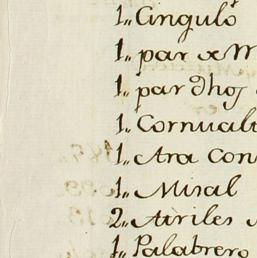 1,, Cingulo
1,, par de M
1,, par dhos
1,, Cornualt
1,, Ara con
1,, Misal
2,, Atriles
1,, Palabrero